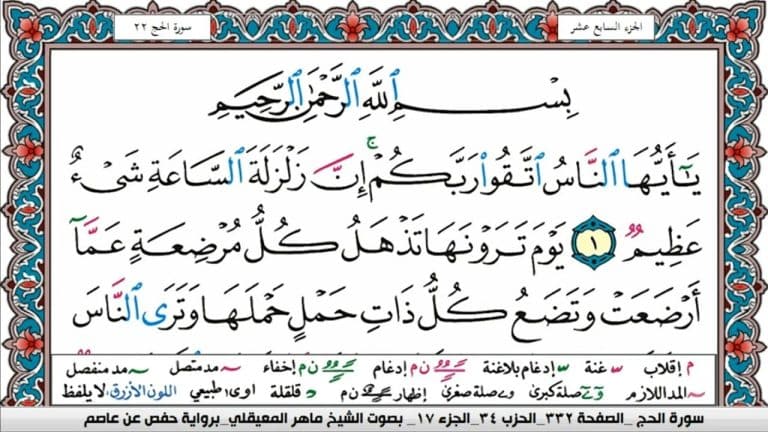 الجزء السابع عشر
سورة الحج ٢٢
بِسْمِ ٱللَّهِ ٱلرَّحْمَٰنِ ٱلرَّحِيمِ
يَٰٓأَيُّهَا ٱلنَّاسُ ٱتَّقُوا۟ رَبَّكُمْ ۚ إِنَّ زَلْزَلَةَ ٱلسَّاعَةِ شَىْءٌ
عَظِيمٌ ١ يَوْمَ تَرَوْنَهَا تَذْهَلُ كُلُّ مُرْضِعَةٍ عَمَّآ
أَرْضَعَتْ وَتَضَعُ كُلُّ ذَاتِ حَمْلٍ حَمْلَهَا وَتَرَى ٱلنَّاسَ
م إقلاب غنة إدغام بلاغنة ن م إدغام ن م إخفاء مد متصل مد منفصل
المد اللازم صلة كبرى وصلة صغرى إظهار ن م قلقلة اوى طبيعي اللون الأزرق لا يلفظ
سورة الحج _الصفحة ٣٣٢_الحزب ٣٤_الجزء ١٧_ بصوت الشيخ ماهر المعيقلي_برواية حفص عن عاصم